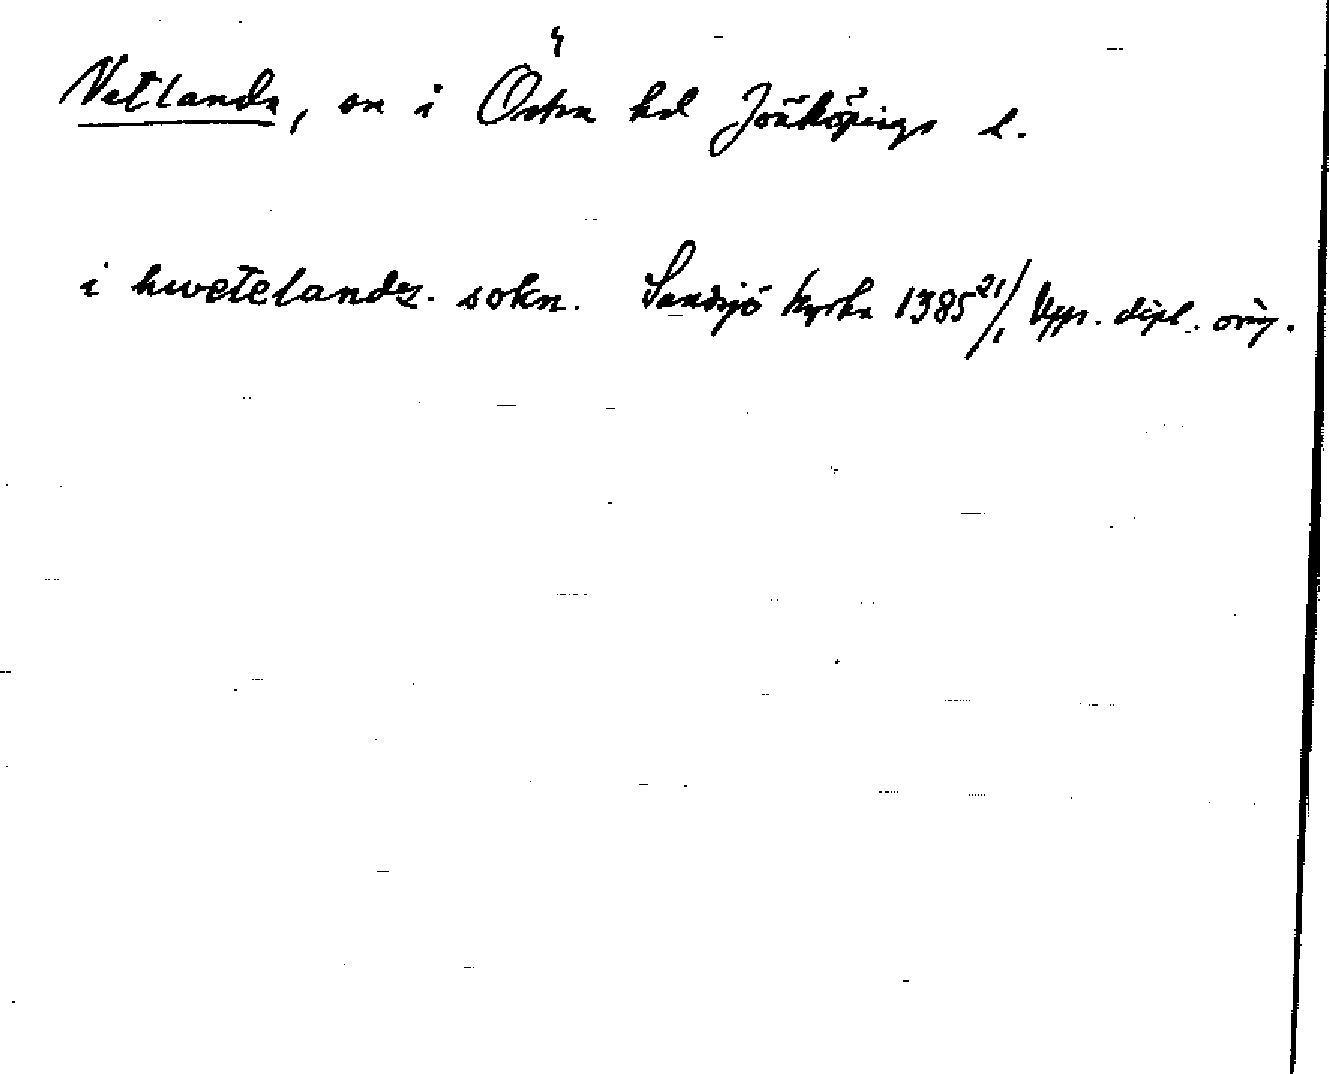 4
Vetlanda, sn i Östra hd Jönköpings l.
i hwetelandz. sokn. Sandsjö kyrka 1385 21/1 Upps. dipl. orig.